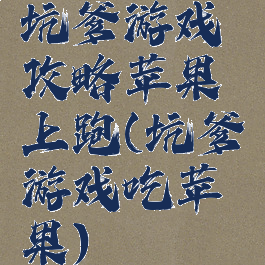 坑爹游戏
攻略苹果
上跑(坑爹
游戏吃苹
果)